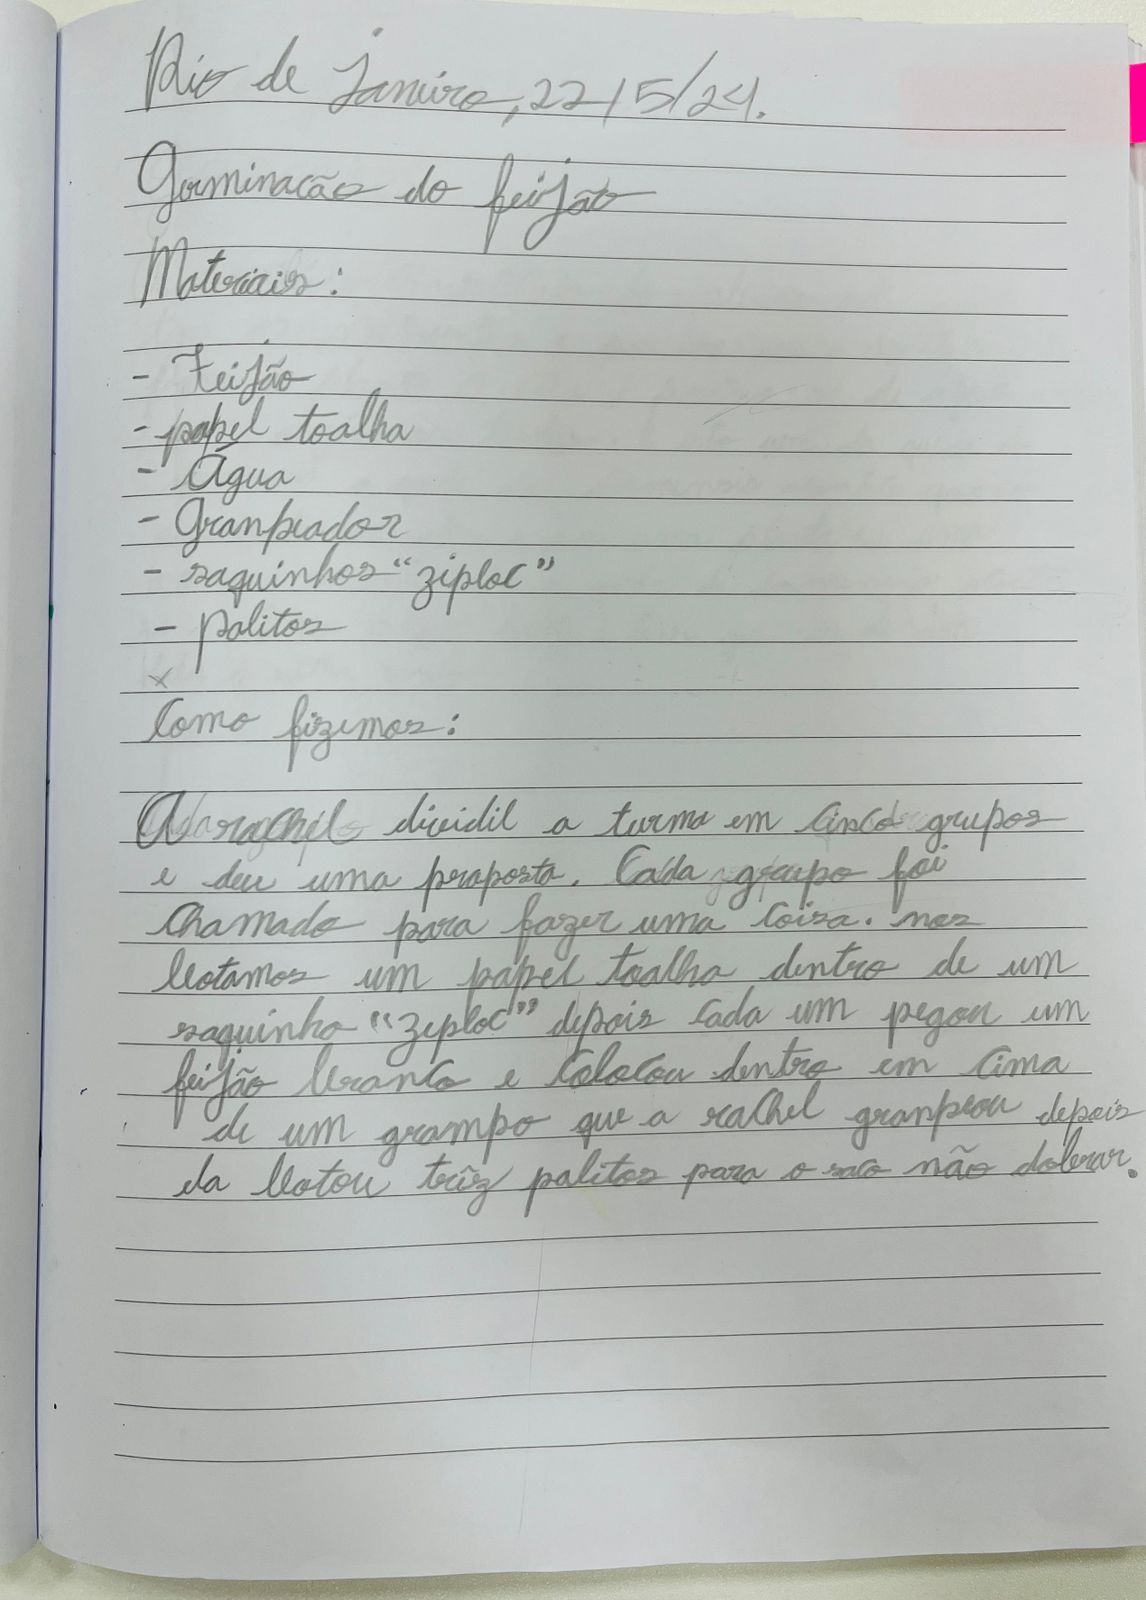 Rio de janeiro, 22/5/24.
Germinacão do feijão
Materiais:
- Feijão
- papel toalha
- Água
- Granpeador
- saquinhos "ziploc"
- palitos
x
Como fizemos:
A rachel dividil a turma em cinco grupos
e deu uma proposta. Cada grupo foi
chamado para fazer uma coisa. nos
botamos um papel toalha dentro de um
saquinho "zeploc" depois cada um pegou um
feijão branco e colocou dentro em cima
de um grampo que a rachel granpeou depois
da botou trêz palitos para o saco não dobrar.